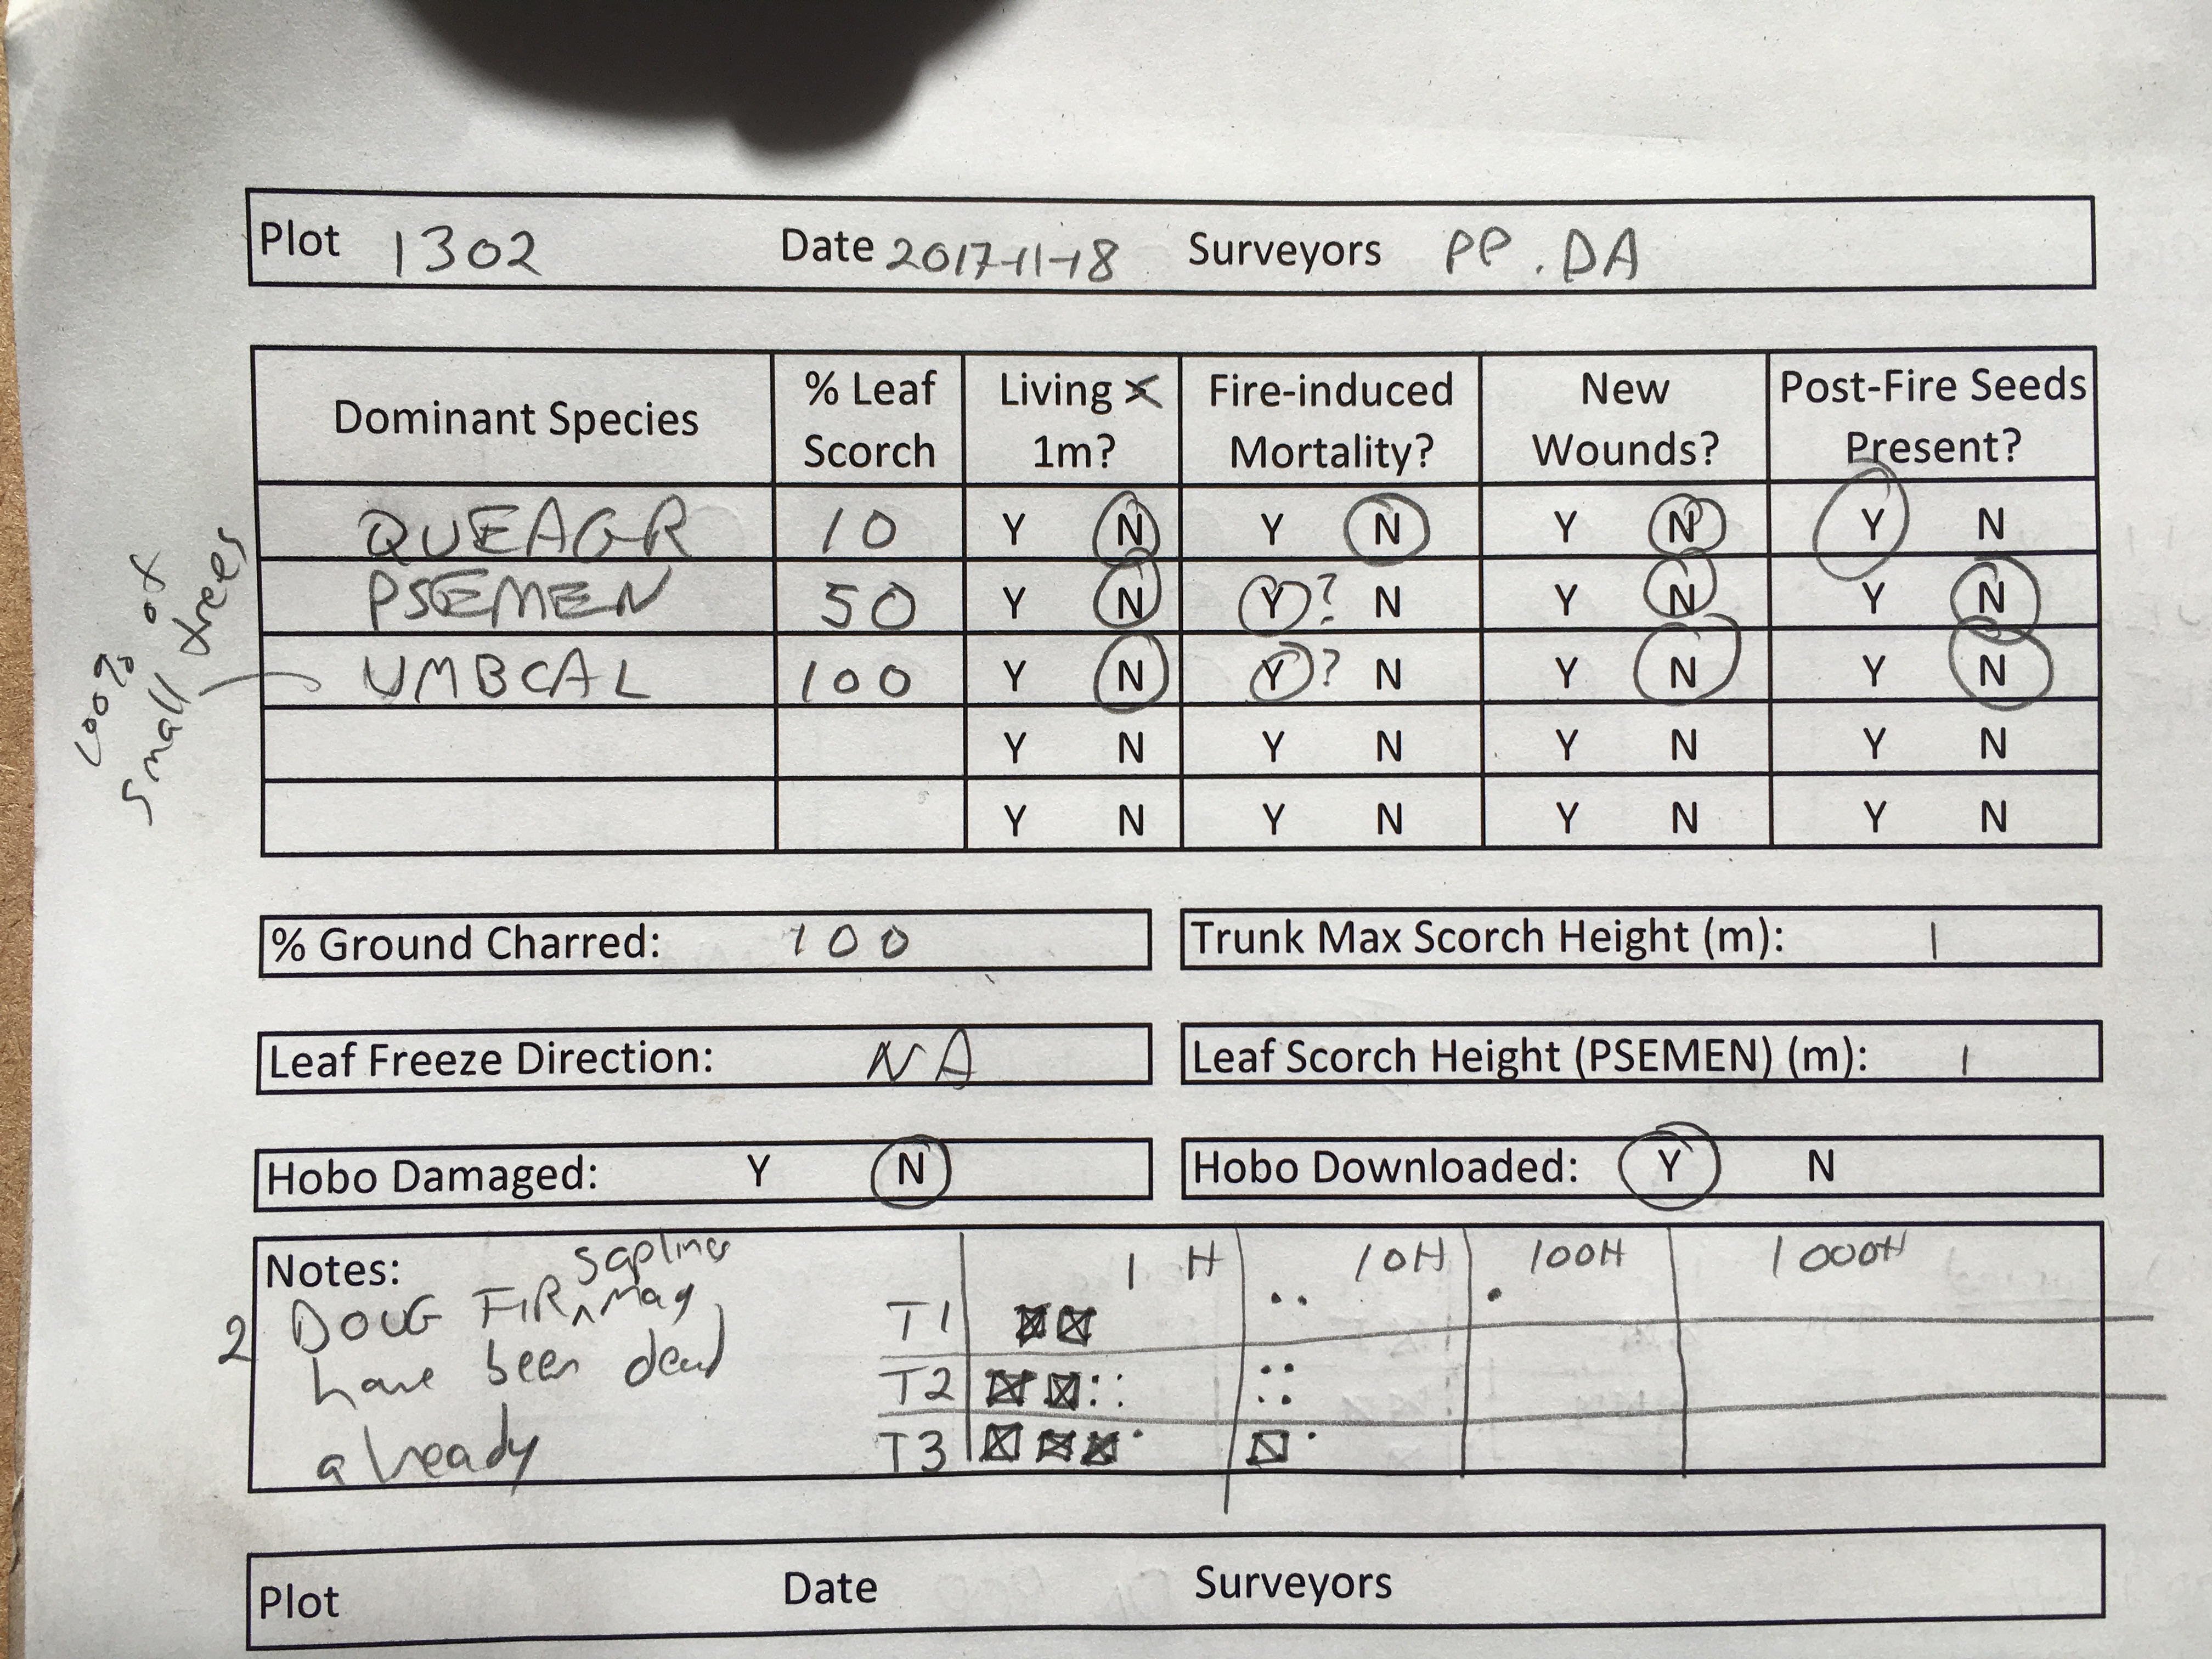 Plot 1302 Date 2017-11-18 Surveyors PP. DA
Dominant Species % Leaf Scorch Living X 1m? Fire-induced Mortality? New Wounds? Post-Fire Seeds Present?
QUEAGR 10 Y N Y N Y N Y N
PSEMEN 50 Y N Y? N Y N Y N
UMBCAL 100 Y N Y? N Y N Y N
Y N Y N Y N Y N
Y N Y N Y N Y N
100% of
small trees
% Ground Charred: 100 Trunk Max Scorch Height (m): 1
Leaf Freeze Direction: NA Leaf Scorch Height (PSEMEN) (m): 1
Hobo Damaged: Y N Hobo Downloaded: Y N
Notes: sapling
2 DOUG FIR may
have been dead
already
1H 10H 100H 1000H
T1
T2
T3
Plot Date Surveyors